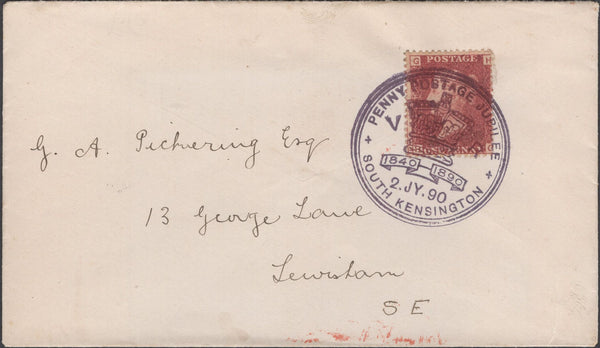 G H
POSTAGE
PENNY POSTAGE JUBILEE
V
1840 1890
2.JY.90
SOUTH KENSINGTON
G. A. Pickering Esq
13 George Lane
Lewisham
S E